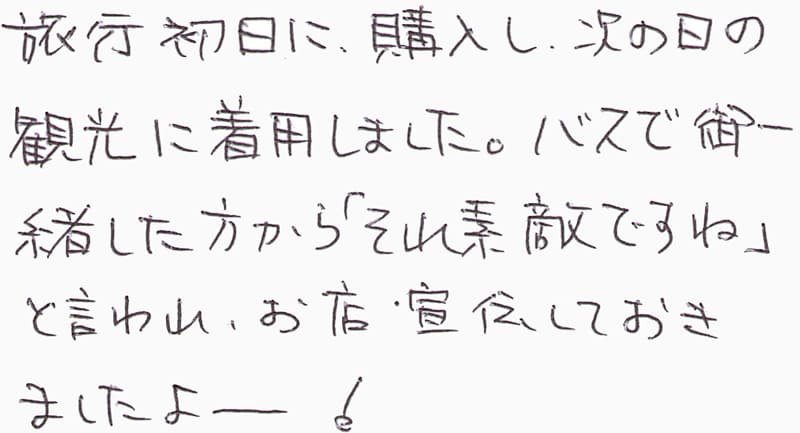 旅行初日に、購入し、次の日の
観光に着用しました。バスで御一
緒した方から「それ素敵ですね」
と言われ、お店・宣伝しておき
ましたよー！